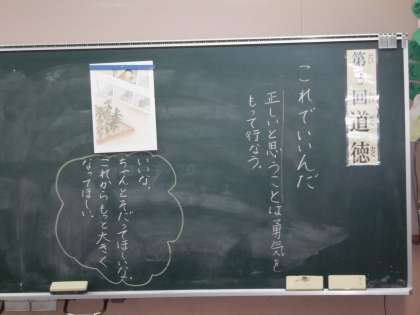 第3回道徳
これでいいんだ
正しいと思うことは勇気を
もって行なう。
いいな。
ちゃんとそだってほしいな。
これからもっと大きく
なってほしい。